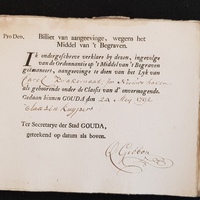 Pro Deo. Billiet van aangeevinge, wegens het
Middel van 't Begraven.
IK ondergeschreven verklare by dezen, ingevolge
van de Ordonnantie op 't Middel van 't Begraven
geëmaneert, aangeevinge te doen van het Lyk van
als gehoorende onder de Classis van d' onvermogende.
Gedaan binnen GOUDA, den 22 May
Ter Secretarye der Stad GOUDA,
geteekend op datum als boven.